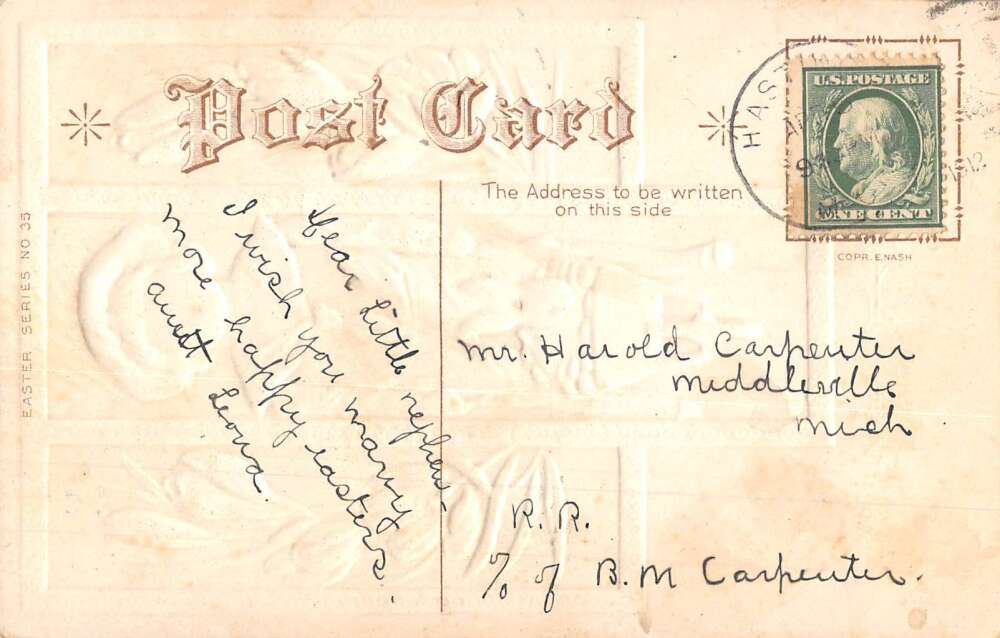 Post Card
The Address to be written
on this side
U.S. POSTAGE
ONE CENT
HAST
COPR. E. NASH
EASTER SERIES NO 35
Dear Little nephew-
I wish you many
more happy easters.
aunt Leona.
Mr. Harold Carpenter
Middleville
Mich
R. R.
% of B. M Carpenter.